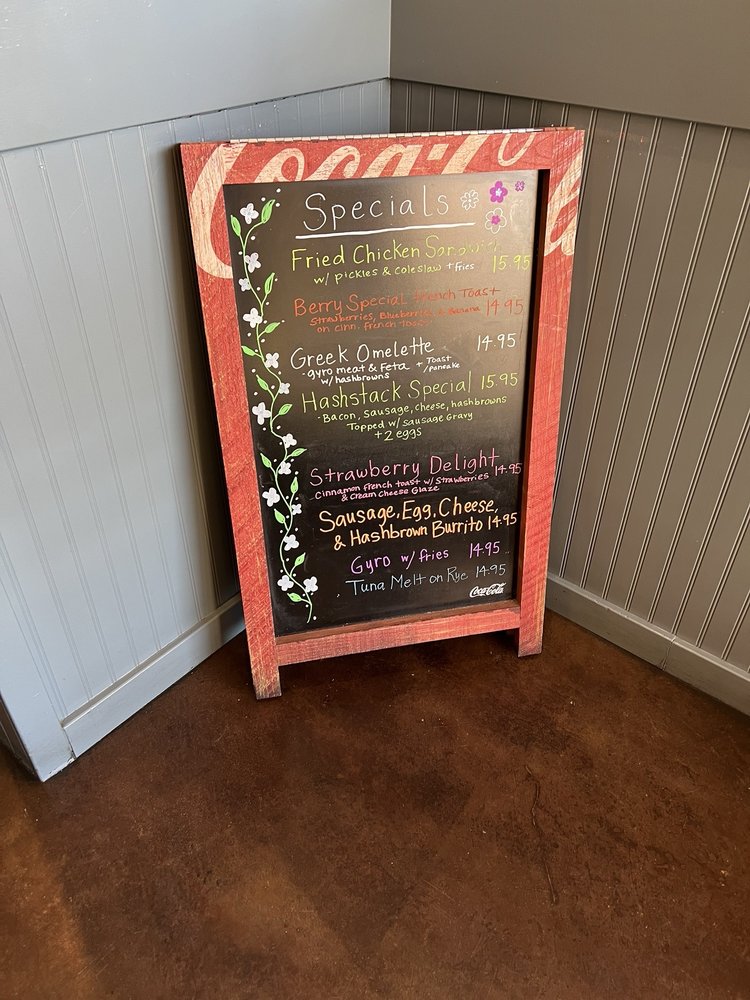 Coca-Cola
Specials
Fried Chicken Sandwich
w/ pickles & coleslaw + fries 15.95
Berry Special French Toast
Strawberries, Blueberries, & Banana 14.95
on cinn. french toast
Greek Omelette 14.95
gyro meat & Feta + Toast
w/ hashbrowns /pancake
Hashstack Special 15.95
Bacon, sausage, cheese, hashbrowns
Topped w/ sausage Gravy
+2 eggs
Strawberry Delight
Cinnamon french toast w/ Strawberries 14.95
& Cream Cheese Glaze
Sausage, Egg, Cheese,
& Hashbrown Burrito 14.95
Gyro w/ fries 14.95
Tuna Melt on Rye 14.95
Coca-Cola